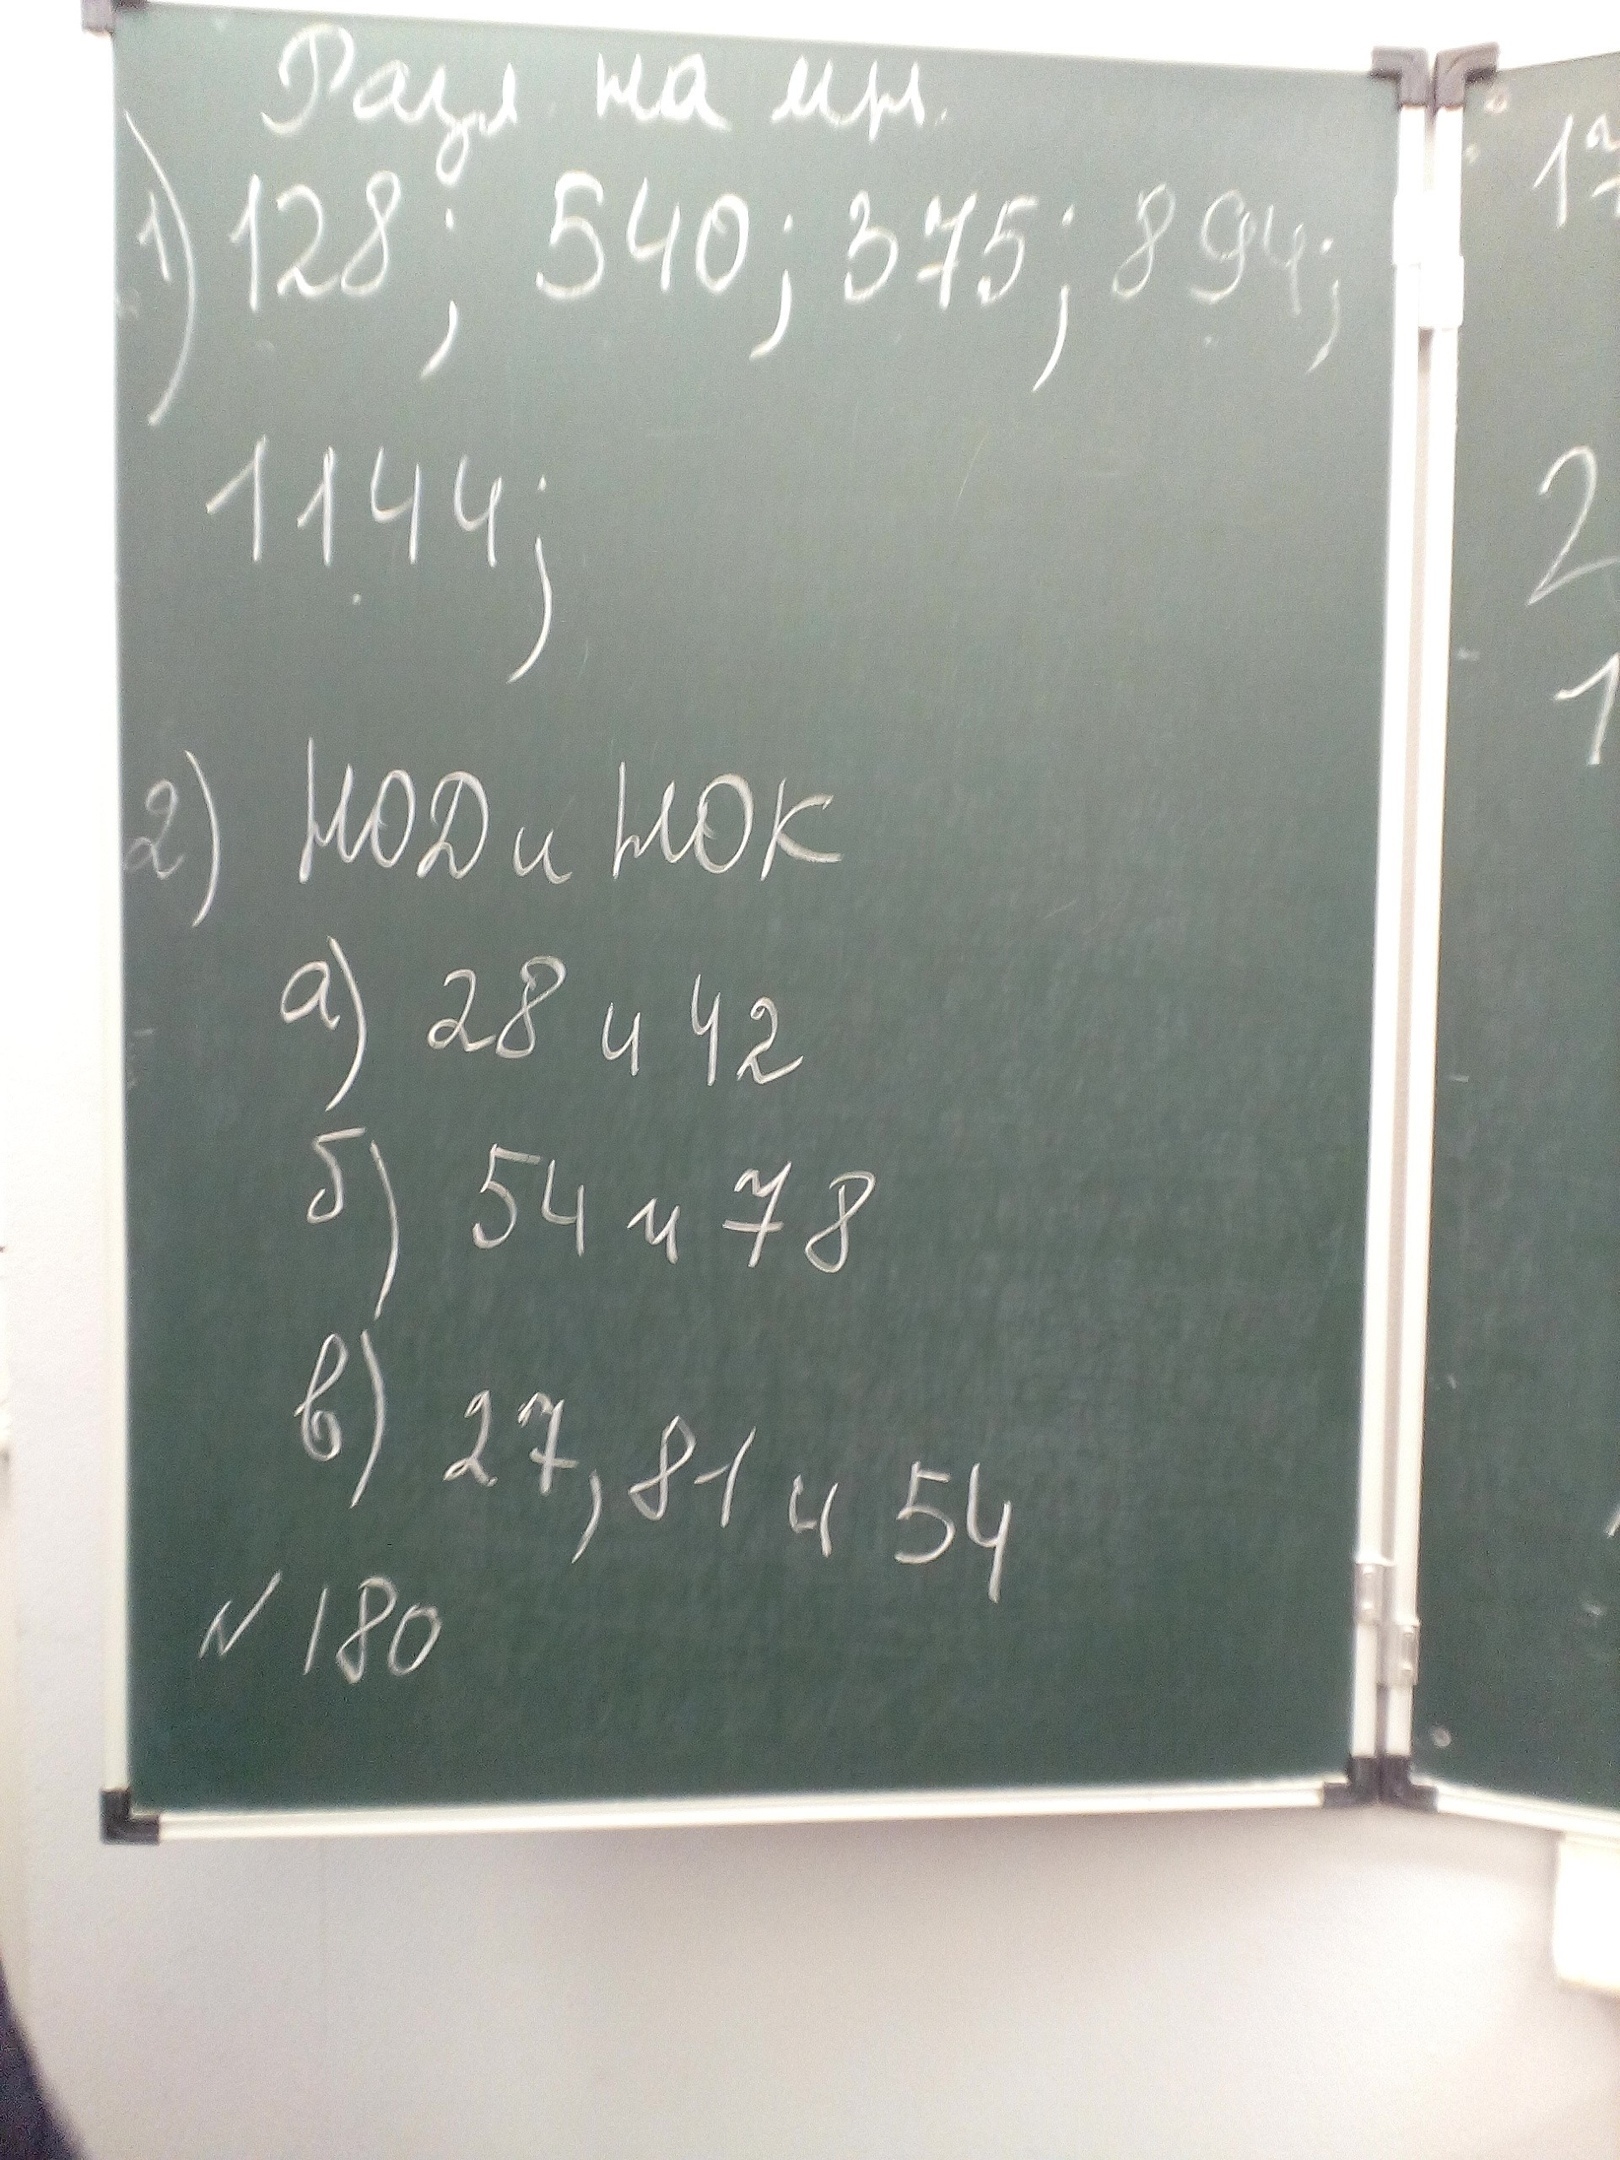 Разл. на мн.
1) 128; 540; 375; 894;
1144;
2) НОД и НОК
а) 28 и 42
б) 54 и 78
в) 27, 81 и 54
№ 180